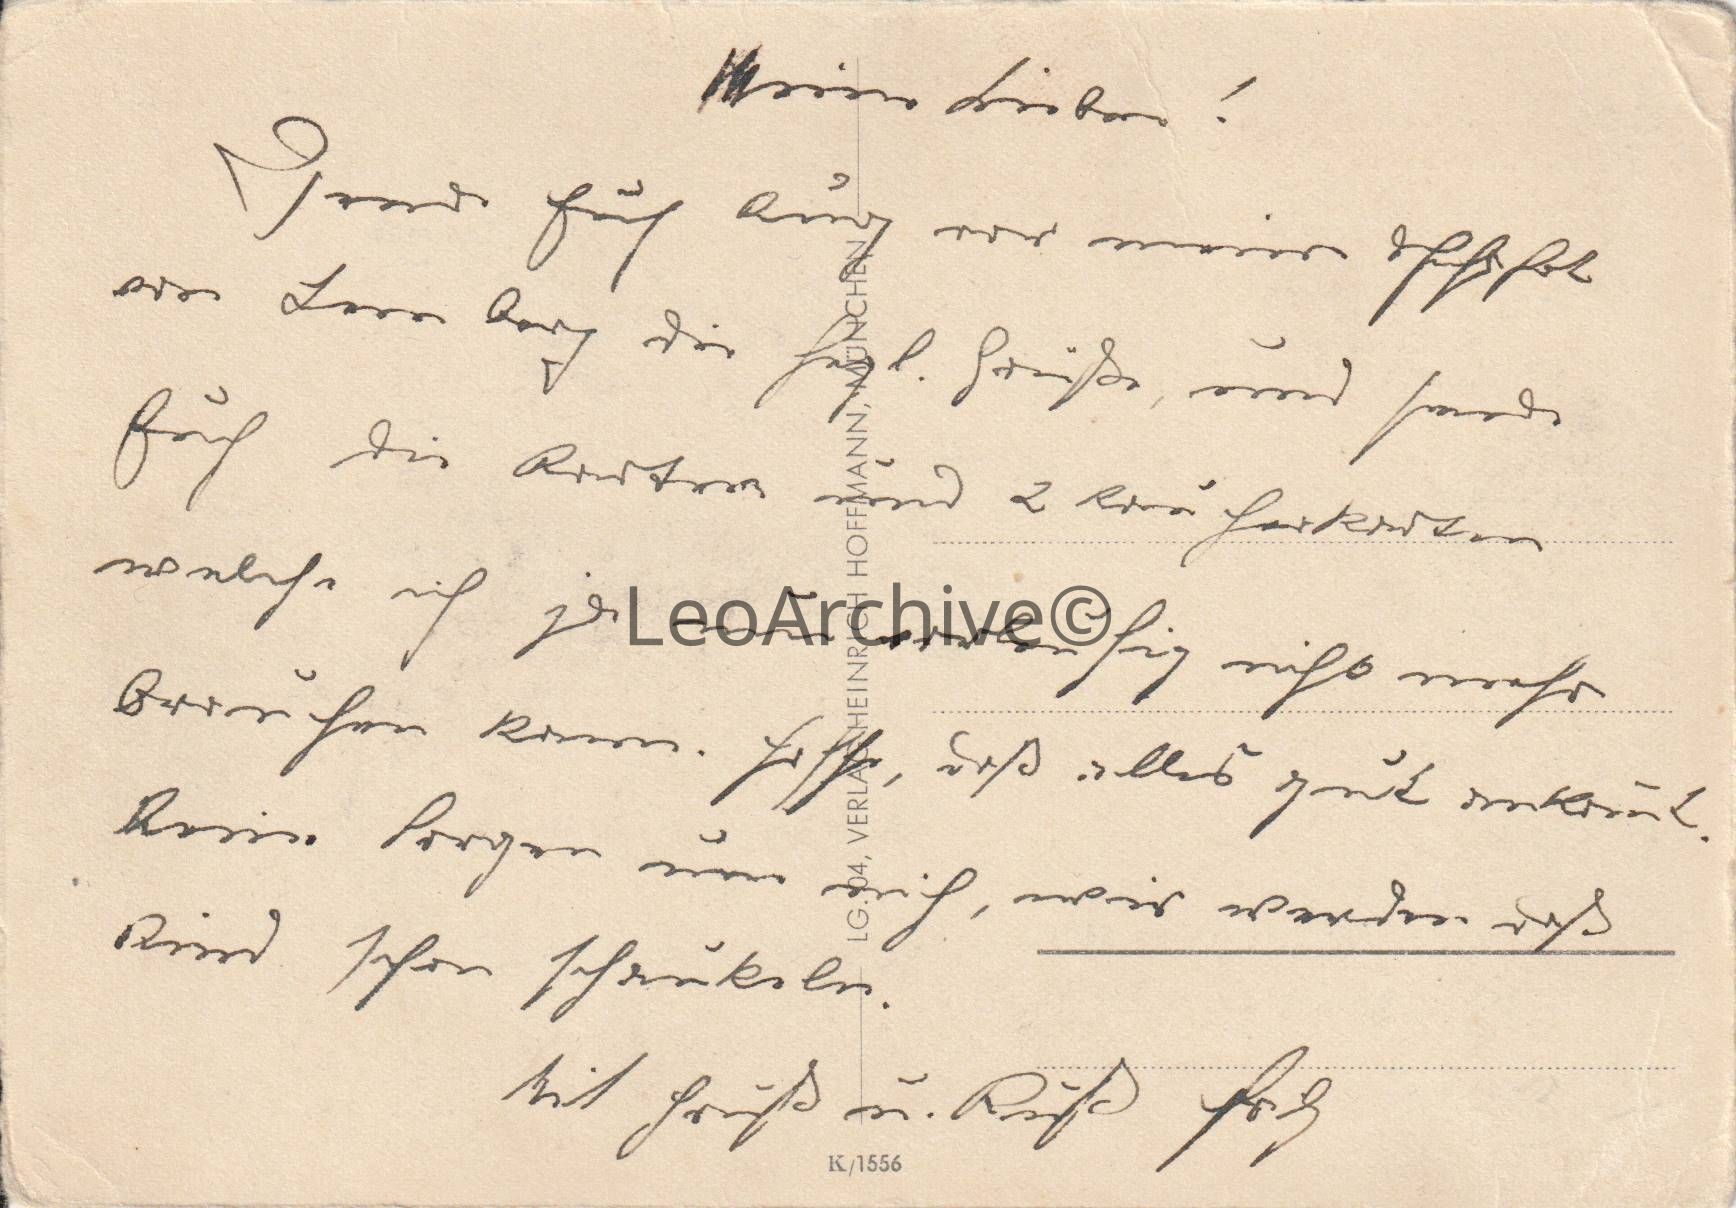 Meine Lieben!
Sende Euch kurz vor meiner Abfahrt
von Lemberg die herzl. Grüße, und sende
Euch die Karten und 2 Raucherkarten
welche ich ja nun vorläufig nicht mehr
brauchen kann. Hoffe, daß alles gut ankom̅t.
Keine Sorgen um mich, wir werden daß
Kind schon schaukeln.
Mit Gruß u. Kuß
LG. 04, VERLAG HEINRICH HOFFMANN, MÜNCHEN
K/1556
LeoArchive©